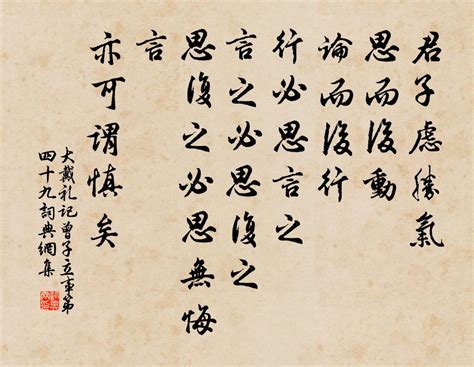 君子慮勝氣
思而後動
論而後行
行必思言之
言之必思復之
思復之必思無悔
言
亦可謂慎矣
大戴礼記曾子立事第
四十九詞典網集